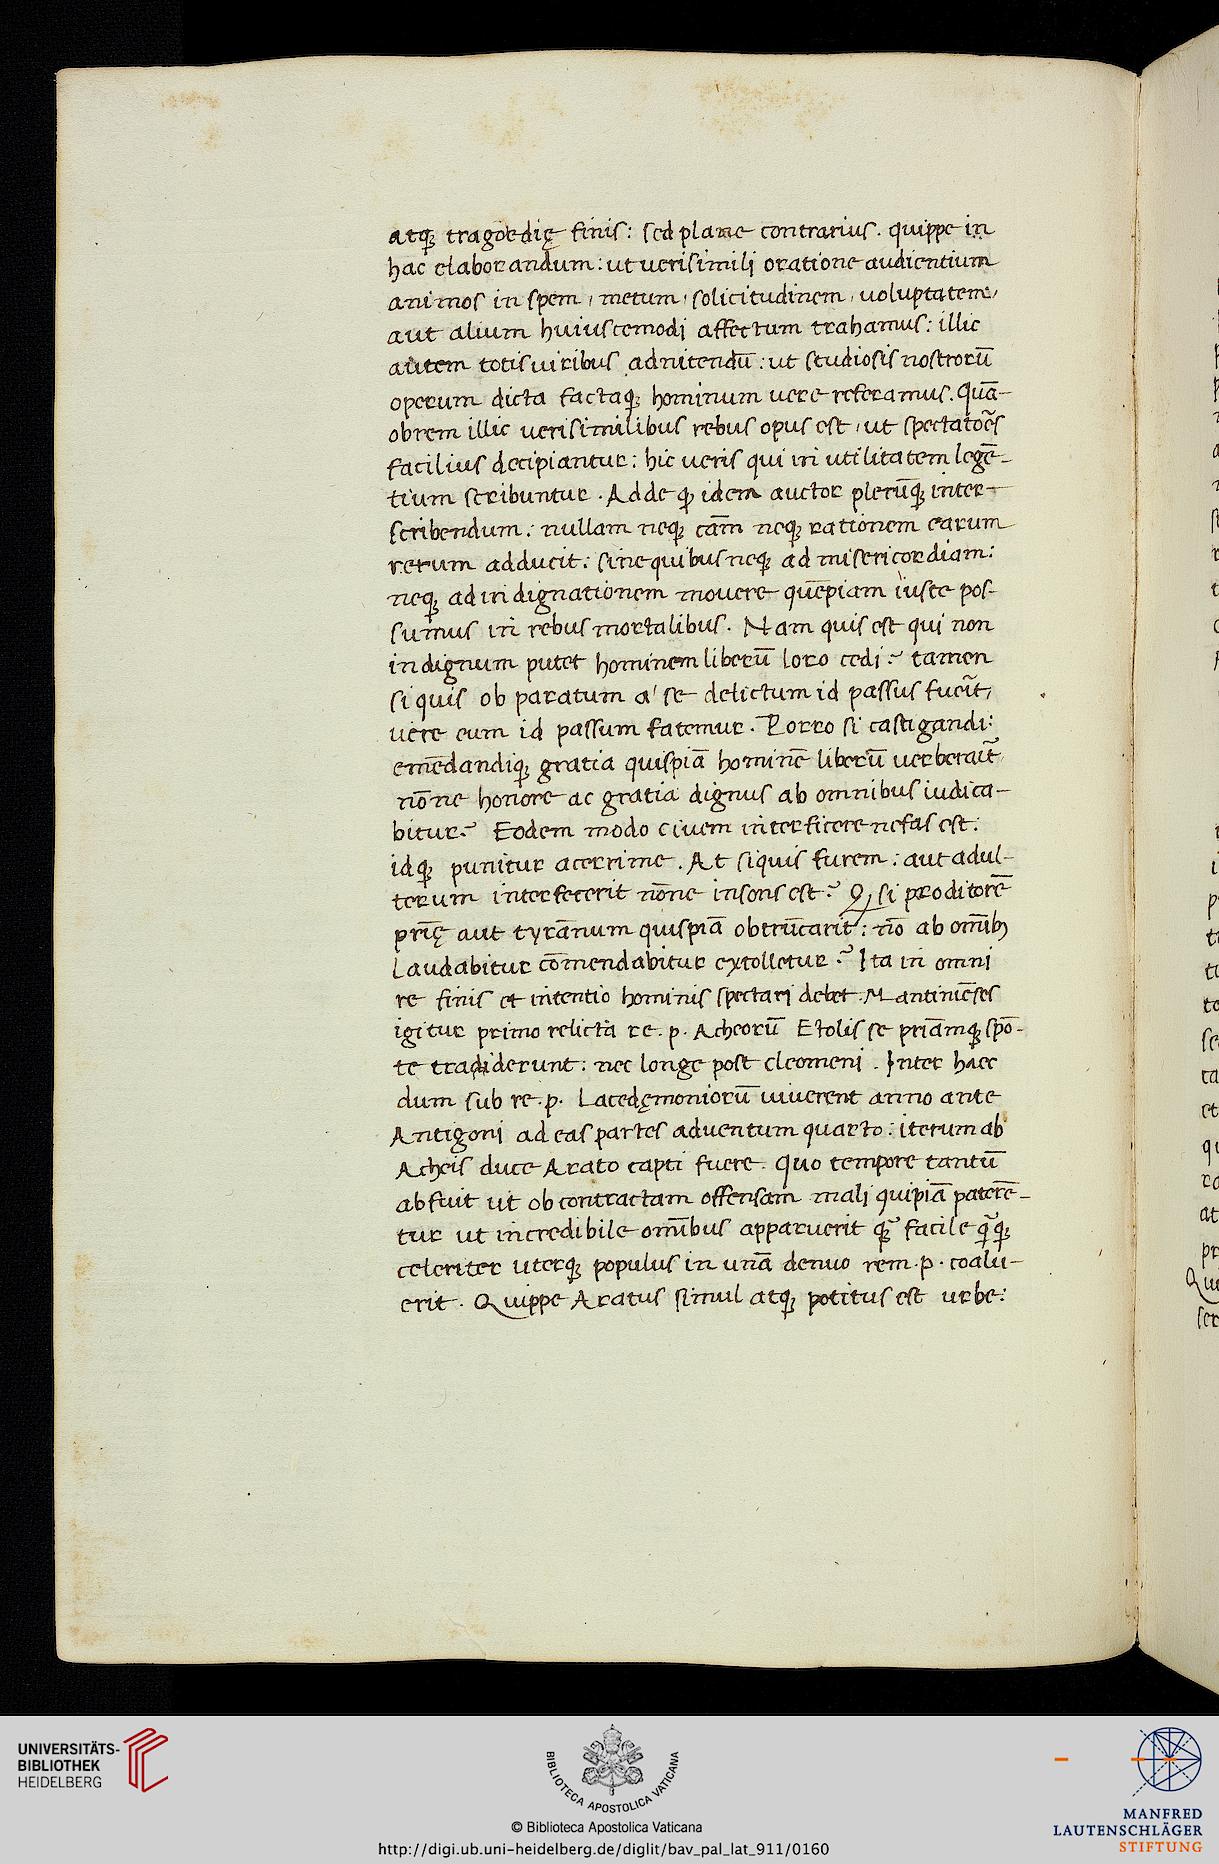 atq; tragoedię finis: sed plane contrarius. quippe in
hac elaborandum: ut uerisimili oratione audientium
animos in spem, metum, solicitudinem, uoluptatem,
aut alium huiuscemodi affectum trahamus: illic
autem totis uiribus adnitendū: ut studiosis nostrorū
operum dicta factaq; hominum uere referamus. Quā-
obrem illic uerisimilibus rebus opus est, ut spectatoēs
facilius decipiantur: hic ueris qui in utilitatem legē-
tium scribuntur. Adde ꝙ idem auctor plerūq; inter-
scribendum: nullam neq; cām neq; rationem earum
rerum adducit: sine quibus neq; ad misericordiam:
neq; ad indignationem mouere quēpiam iuste pos-
sumus in rebus mortalibus. Nam quis est qui non
indignum putet hominem liberū loro cedi? tamen
si quis ob paratum a' se delictum id passus fuerit,
uere eum id passum fatemur. Porro si castigandi:
emēdandiq; gratia quispiā hominē liberū uerberauīt,
nōne honore ac gratia dignus ab omnibus iudica-
bitur? Eodem modo ciuem interficere nefas est:
idq; punitur acerrime. At siquis furem: aut adul-
terum interfecerit nōne insons est? Qꝫ si proditorē
prię aut tyrānum quispiā obtrūcarit: nō ab omībꝫ
laudabitur cōmendabitur extolletur? Ita in omni
re finis et intentio hominis spectari debet. Mantiniēses
igitur primo relicta re. p. Acheorū Etolis se priāmq; spō-
te tradiderunt: nec longe post cleomeni. Inter haec
dum sub re. p. Lacedęmoniorū uiuerent anno ante
Antigoni ad eas partes aduentum quarto: iterum ab
Acheis duce Arato capti fuere. Quo tempore tantū
abfuit ut ob contractam offensam mali quipiā paterē-
tur ut incredibile omībus apparuerit q̄ facile q̄q;
celeriter uterq; populus in unā denuo rem. p. coalu-
erit. Quippe Aratus simul atq; potitus est urbe:
UNIVERSITÄTS-
BIBLIOTHEK
HEIDELBERG
BIBLIOTECA APOSTOLICA VATICANA
© Biblioteca Apostolica Vaticana
http://digi.ub.uni-heidelberg.de/diglit/bav_pal_lat_911/0160
MANFRED
LAUTENSCHLÄGER
STIFTUNG